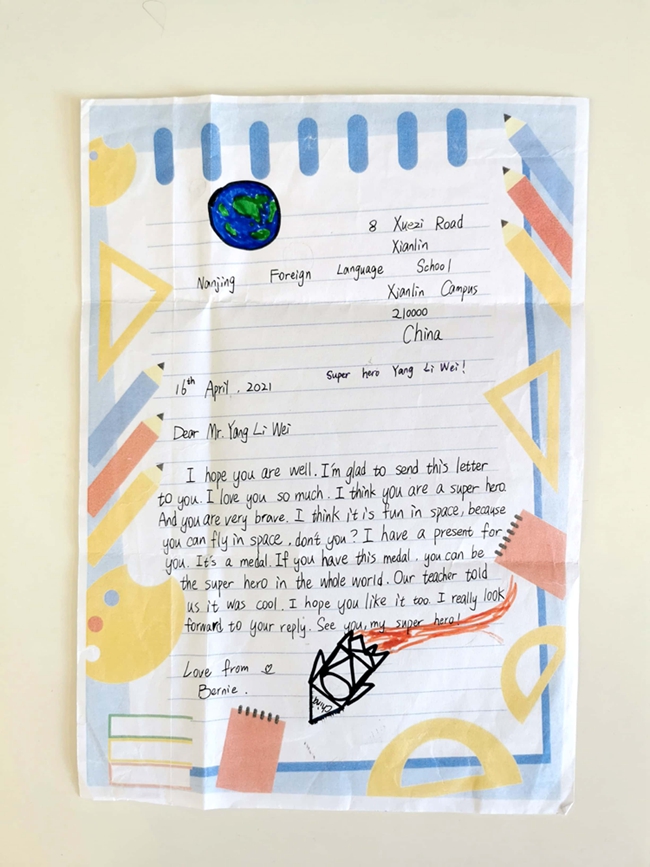 8 Xuezi Road
Xianlin
Nanjing Foreign Language School
Xianlin Campus
210000
China
Super hero Yang Li Wei!
16th April, 2021
Dear Mr. Yang Li Wei
I hope you are well. I'm glad to send this letter
to you. I love you so much. I think you are a super hero.
And you are very brave. I think it is fun in space, because
you can fly in space, don't you? I have a present for
you. It's a medal. If you have this medal, you can be
the super hero in the whole world. Our teacher told
us it was cool. I hope you like it too. I really look
forward to your reply. See you, my super hero!
Love from
Bernie.
China